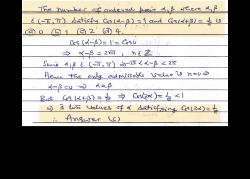 The number of ordered pair α,β where α,β
ε (-π,π) Satisfy Cos(α-β)=1 and Cos(α+β)=1/e is
(a) 0 (b) 1 (c) 2 (d) 4.
Cos(α-β)=1=Cos0
⇒ α-β = 2nπ, n∈Z
Since α,β ε (-π,π) ⇒ -2π<α-β<2π
Hence the only admissible value is n=0 ⇒
α-β=0 ⇒ α=β
But Cos(α+β)=1/e ⇒ Cos(2α)=1/e <1
⇒ values of α Satisfying Cos(2α)=1/e
∴ Answer (